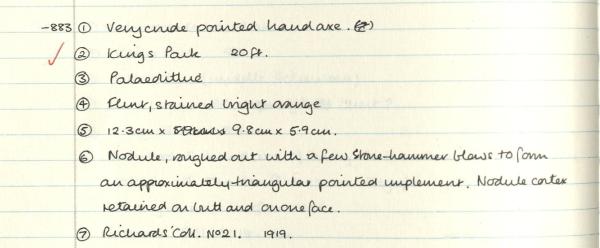 -883 ① Very crude pointed handaxe. (?)
② Kings Park 20ft.
③ Palaeolithic
④ Flint, stained bright orange
⑤ 12.3cm x 9.8cm x 5.9cm.
⑥ Nodule, roughed out with a few stone-hammer blows to form
an approximately-triangular pointed implement. Nodule cortex
retained on butt and on one face.
⑦ Richards' Coll. No 21. 1919.